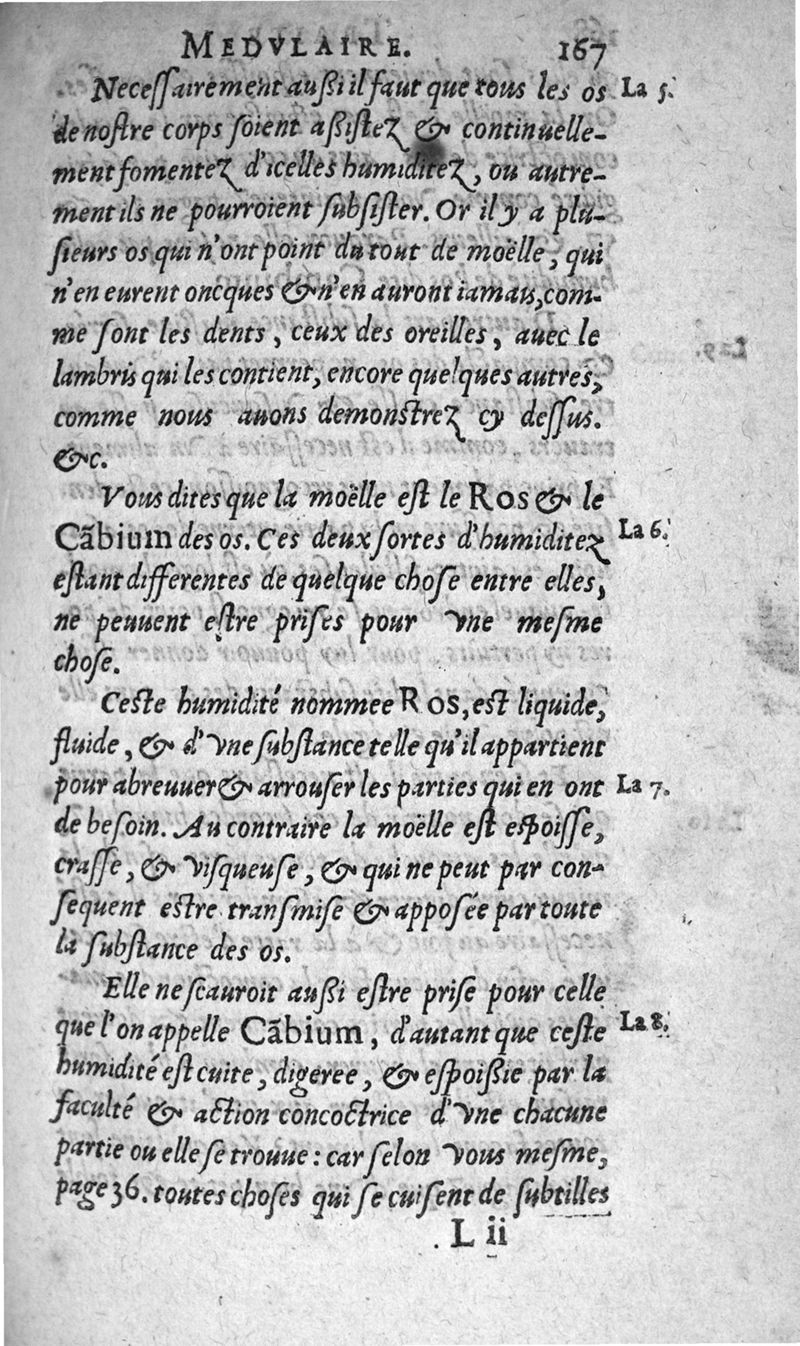 MEDVLAIRE. 167
Necessairement aussi il faut que tous les os La 5.
de nostre corps soient assistez & continuelle-
ment fomentez d'icelles humiditez, ou autre-
ment ils ne pourroient subsister. Or il y a plu-
sieurs os qui n'ont point du tout de moëlle, qui
n'en eurent oncques & n'en auront iamais, com-
me sont les dents, ceux des oreilles, auec le
lambris qui les contient, encore quelques autres,
comme nous auons demonstrez cy dessus.
&c.
Vous dites que la moëlle est le Ros & le
Cãbium des os. Ces deux sortes d'humiditez La 6.
estant differentes de quelque chose entre elles,
ne peuuent estre prises pour vne mesme
chose.
Ceste humidité nommee Ros, est liquide,
fluide, & d'vne substance telle qu'il appartient
pour abreuuer & arrouser les parties qui en ont La 7.
de besoin. Au contraire la moëlle est espoisse,
crasse, & visqueuse, & qui ne peut par con-
sequent estre transmise & apposée par toute
la substance des os.
Elle ne scauroit aussi estre prise pour celle
que l'on appelle Cãbium, d'autant que ceste La 8.
humidité est cuite, digeree, & espoissie par la
faculté & action concoctrice d'vne chacune
partie ou elle se trouue : car selon vous mesme,
page 36. toutes choses qui se cuisent de subtilles
L ii